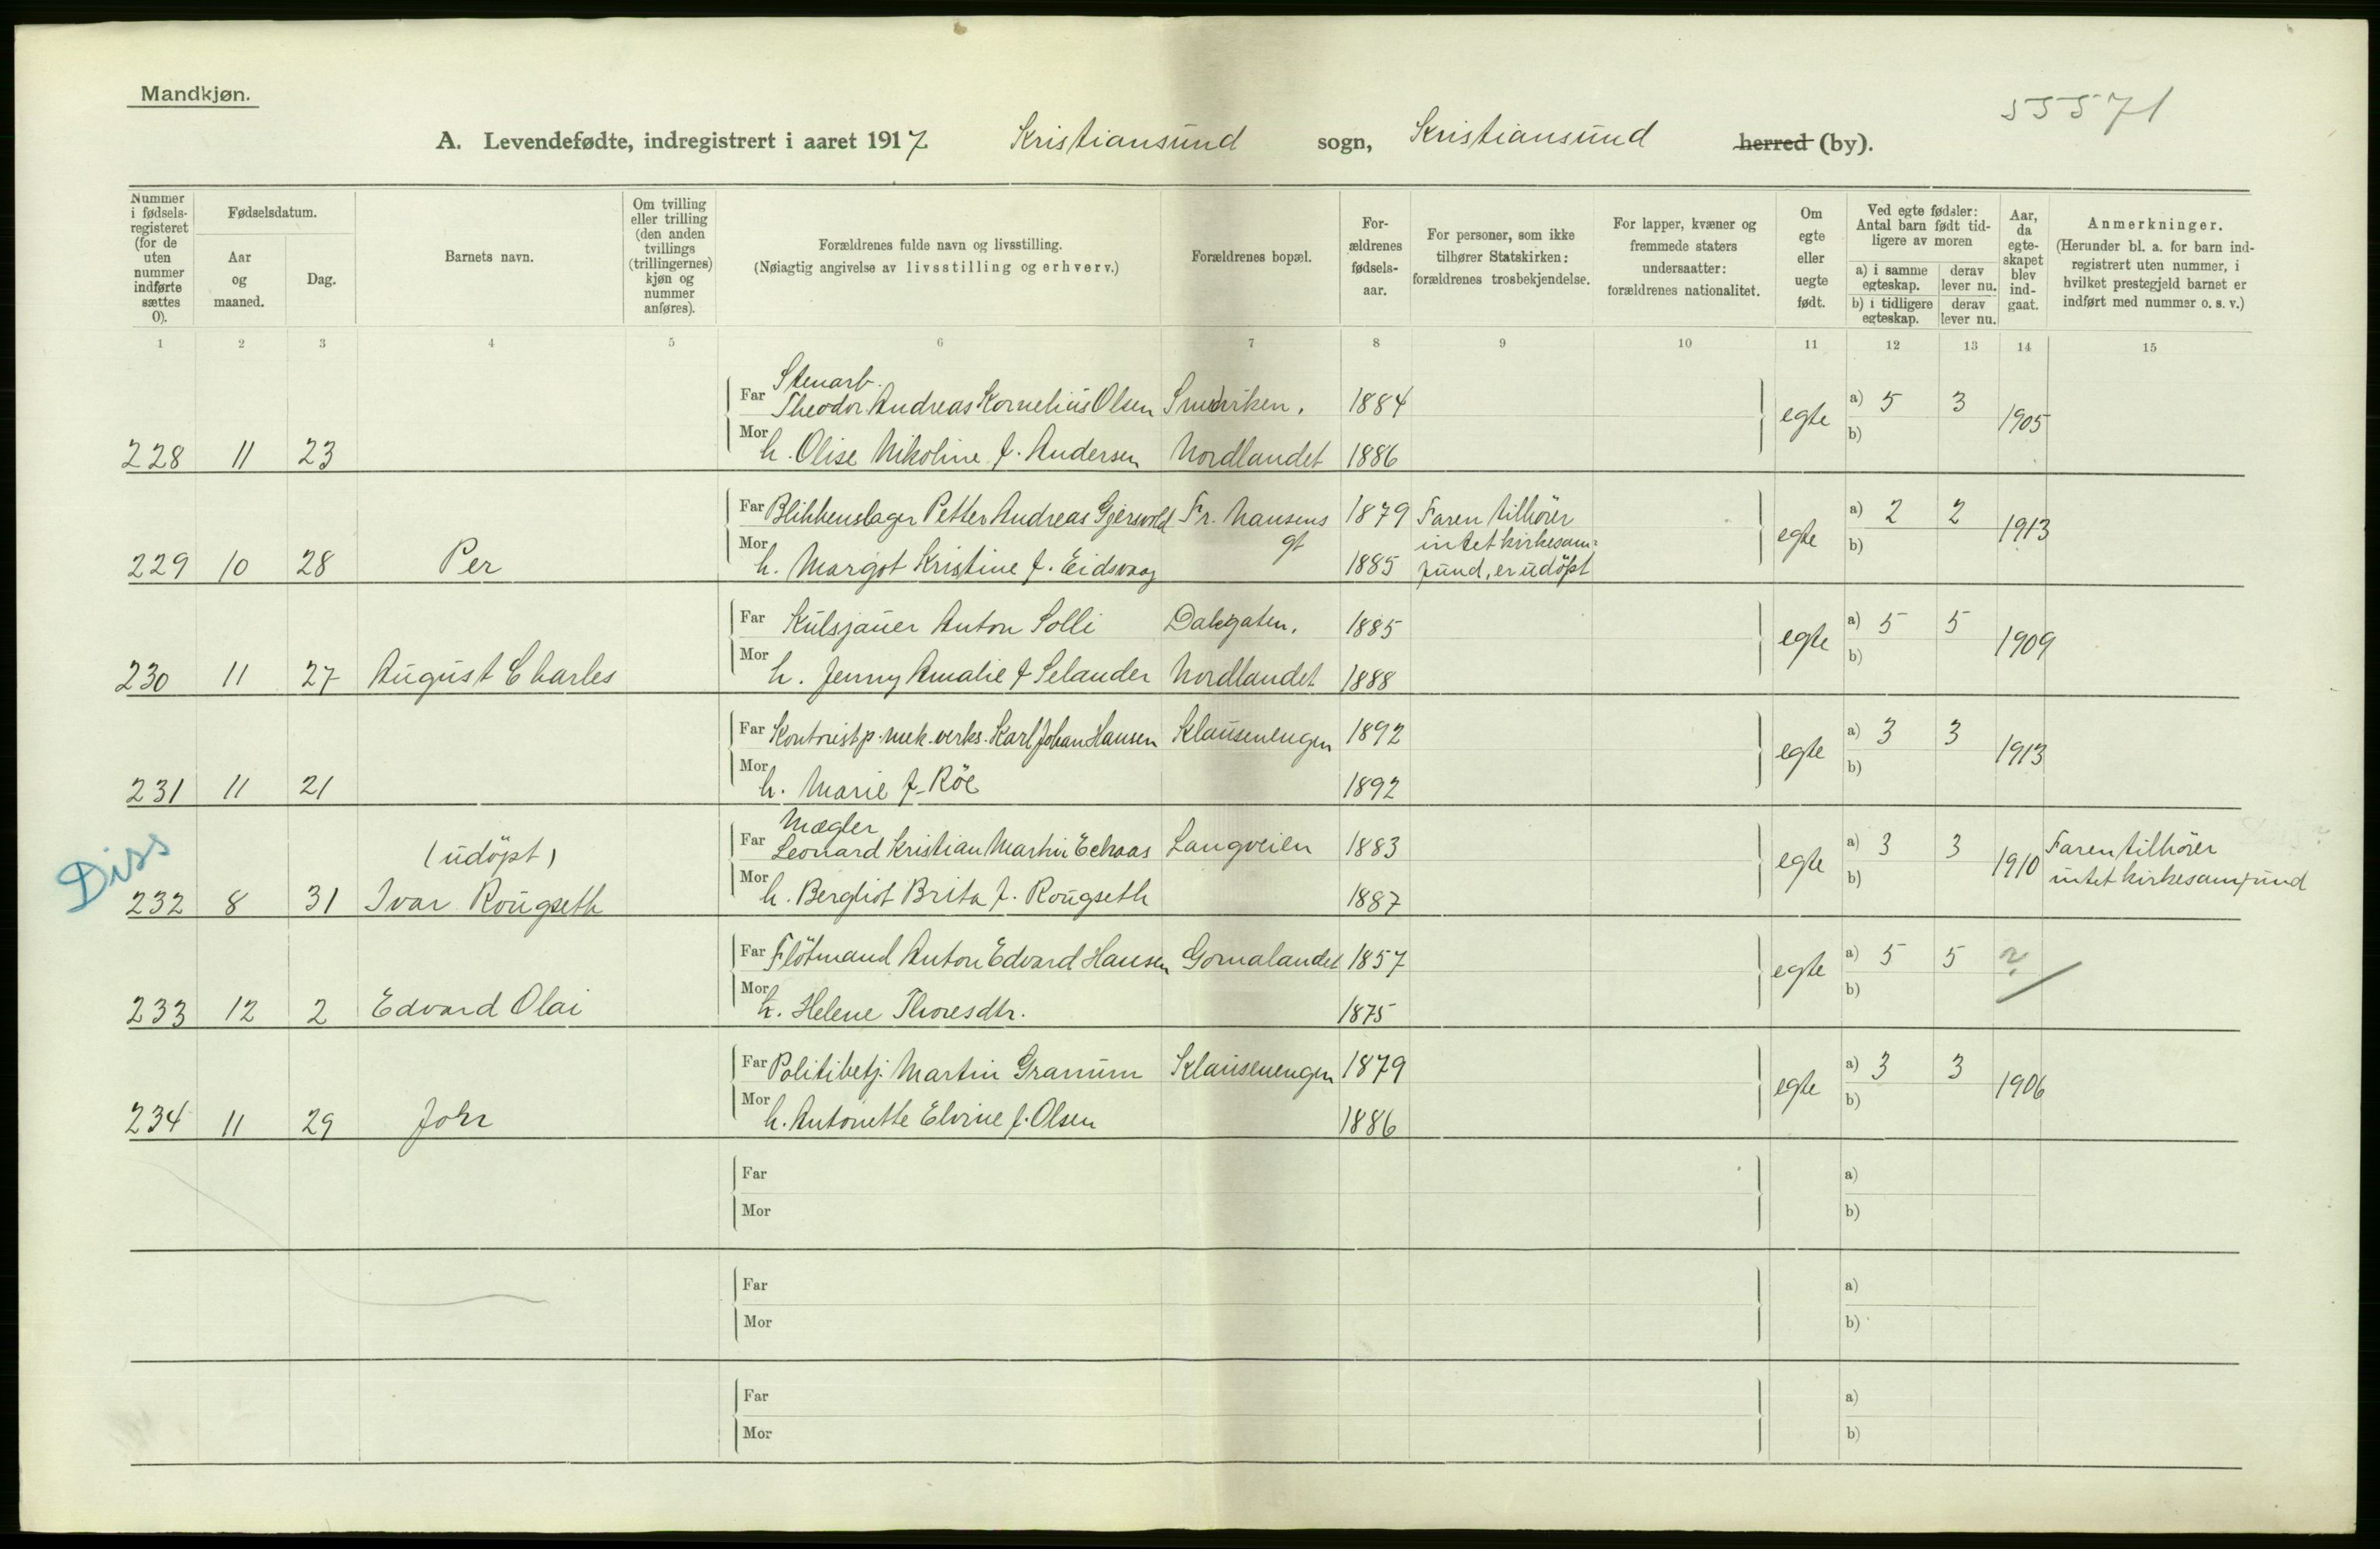 Mandkjøn.
55571
A. Levendefødte, indregistrert i aaret 1917 Kristiansund sogn, Kristiansund herred (by).
Nummer i fødsels-registeret (for de uten nummer indførte sættes 0).
Fødselsdatum.
Aar og maaned.
Dag.
Barnets navn.
Om tvilling eller trilling (den anden tvillings (trillingernes) kjøn og nummer anføres).
Forældrenes fulde navn og livsstilling.
(Nøiagtig angivelse av livsstilling og erhverv.)
Forældrenes bopæl.
For-ældrenes fødsels-aar.
For personer, som ikke tilhører Statskirken: forældrenes trosbekjendelse.
For lapper, kvæner og fremmede staters undersaatter: forældrenes nationalitet.
Om egte eller uegte født.
Ved egte fødsler: Antal barn født tid-ligere av moren
a) i samme egteskap. derav lever nu.
b) i tidligere egteskap. derav lever nu.
Aar, da egte-skapet blev ind-gaat.
Anmerkninger.
(Herunder bl. a. for barn ind-registrert uten nummer, i hvilket prestegjeld barnet er indført med nummer o. s. v.)
1 2 3 4 5 6 7 8 9 10 11 12 13 14 15
Stenarb.
Far Theodor Andreas Kornelius Olsen 1884 egte a) 5 3 1905
b)
228 11 23 Mor h. Olise Nikoline f. Andersen Nordlandet 1886
Far Blikkenslager Petter Andreas Gjersvold Fr. Nansens 1879 Faren tilhörer egte a) 2 2 1913
gt intet kirkesam= b)
229 10 28 Per Mor h. Margot Kristine f. Eidsvaag 1885 fund, er udöpt
Far Kulsjauer Anton Solli Dalegaten. 1885 egte a) 5 5 1909
b)
230 11 27 August Charles Mor h. Jenny Amalie f Selander Nordlandet 1888
Far Kontorist p. mek. verks. Karl Johan Hansen Klausenengen 1892 egte a) 3 3 1913
b)
231 11 21 Mor h. Marie f. Röe 1892
Mægler
Diss (udöpt) Far Leonard Kristian Martin Echaas Langveien 1883 egte a) 3 3 1910 Faren tilhörer
b) intet kirkesamfund
232 8 31 Ivar Rougseth Mor h. Bergliot Brita f. Rougseth 1887
Far Flötmand Anton Edvard Hansen Gomalandet 1857 egte a) 5 5 ?
b)
233 12 2 Edvard Olai Mor h. Helene Thoresdtr. 1875
Far Politibetj. Martin Granum Klausenengen 1879 egte a) 3 3 1906
b)
234 11 29 Mor h. Antonette Elvine f. Olsen 1886
Far a)
Mor b)
Far a)
Mor b)
Far a)
Mor b)